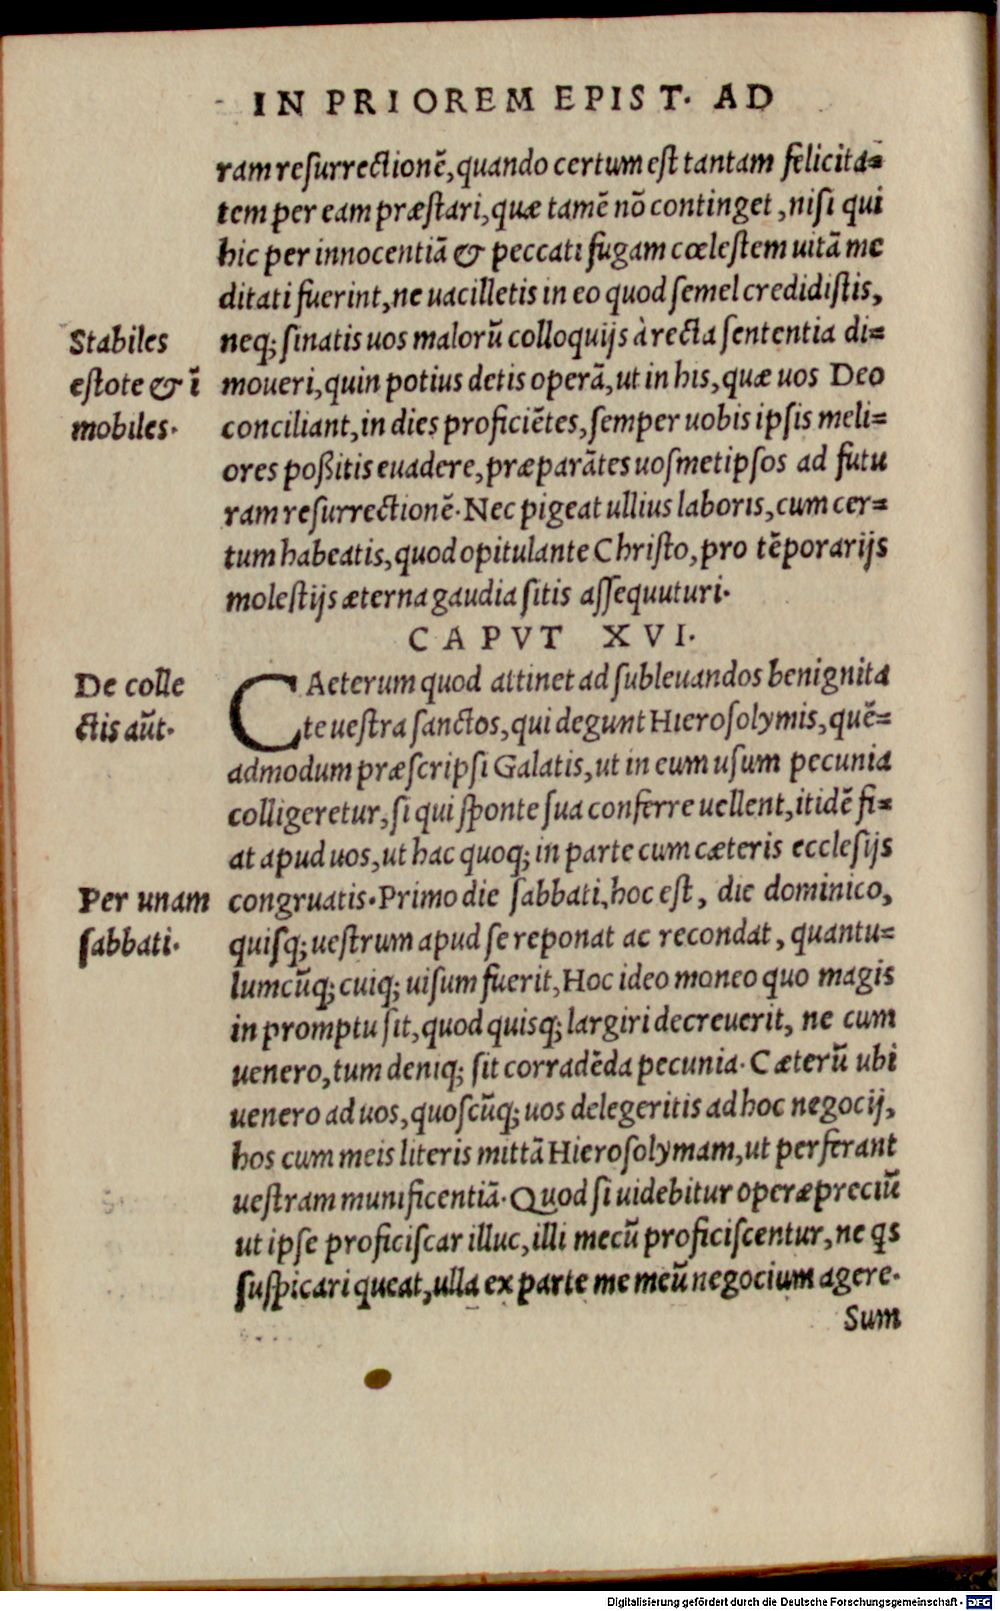 IN PRIOREM EPIST. AD
ram resurrectionē, quando certum est tantam felicita=
tem per eam præstari, quæ tamē nō continget, nisi qui
hic per innocentiā & peccati fugam cœlestem uitā me
ditati fuerint, ne uacilletis in eo quod semel credidistis,
Stabiles
estote & ī
mobiles.
neq; sinatis uos malorū colloquijs à recta sententia di=
moueri, quin potius detis operā, ut in his, quæ uos Deo
conciliant, in dies proficiētes, semper uobis ipsis meli=
ores poßitis euadere, præparātes uosmetipsos ad futu
ram resurrectionē. Nec pigeat ullius laboris, cum cer=
tum habeatis, quod opitulante Christo, pro tēporarijs
molestijs æterna gaudia sitis assequuturi.
CAPVT XVI.
De colle
ctis aūt.
CAeterum quod attinet ad subleuandos benignita
te uestra sanctos, qui degunt Hierosolymis, quē=
admodum præscripsi Galatis, ut in eum usum pecunia
colligeretur, si qui sponte sua conferre uellent, itidē fi=
at apud uos, ut hac quoq; in parte cum cæteris ecclesijs
Per unam
sabbati.
congruatis. Primo die sabbati, hoc est, die dominico,
quisq; uestrum apud se reponat ac recondat, quantu=
lumcūq; cuiq; uisum fuerit, Hoc ideo moneo quo magis
in promptu sit, quod quisq; largiri decreuerit, ne cum
uenero, tum deniq; sit corradēda pecunia. Cæterū ubi
uenero ad uos, quoscūq; uos delegeritis ad hoc negocij,
hos cum meis literis mittā Hierosolymam, ut perferant
uestram munificentiā. Quod si uidebitur operæpreciū
ut ipse proficiscar illuc, illi mecū proficiscentur, ne qs
suspicari queat, ulla ex parte me meū negocium agere.
Sum
Digitalisierung gefördert durch die Deutsche Forschungsgemeinschaft - DFG